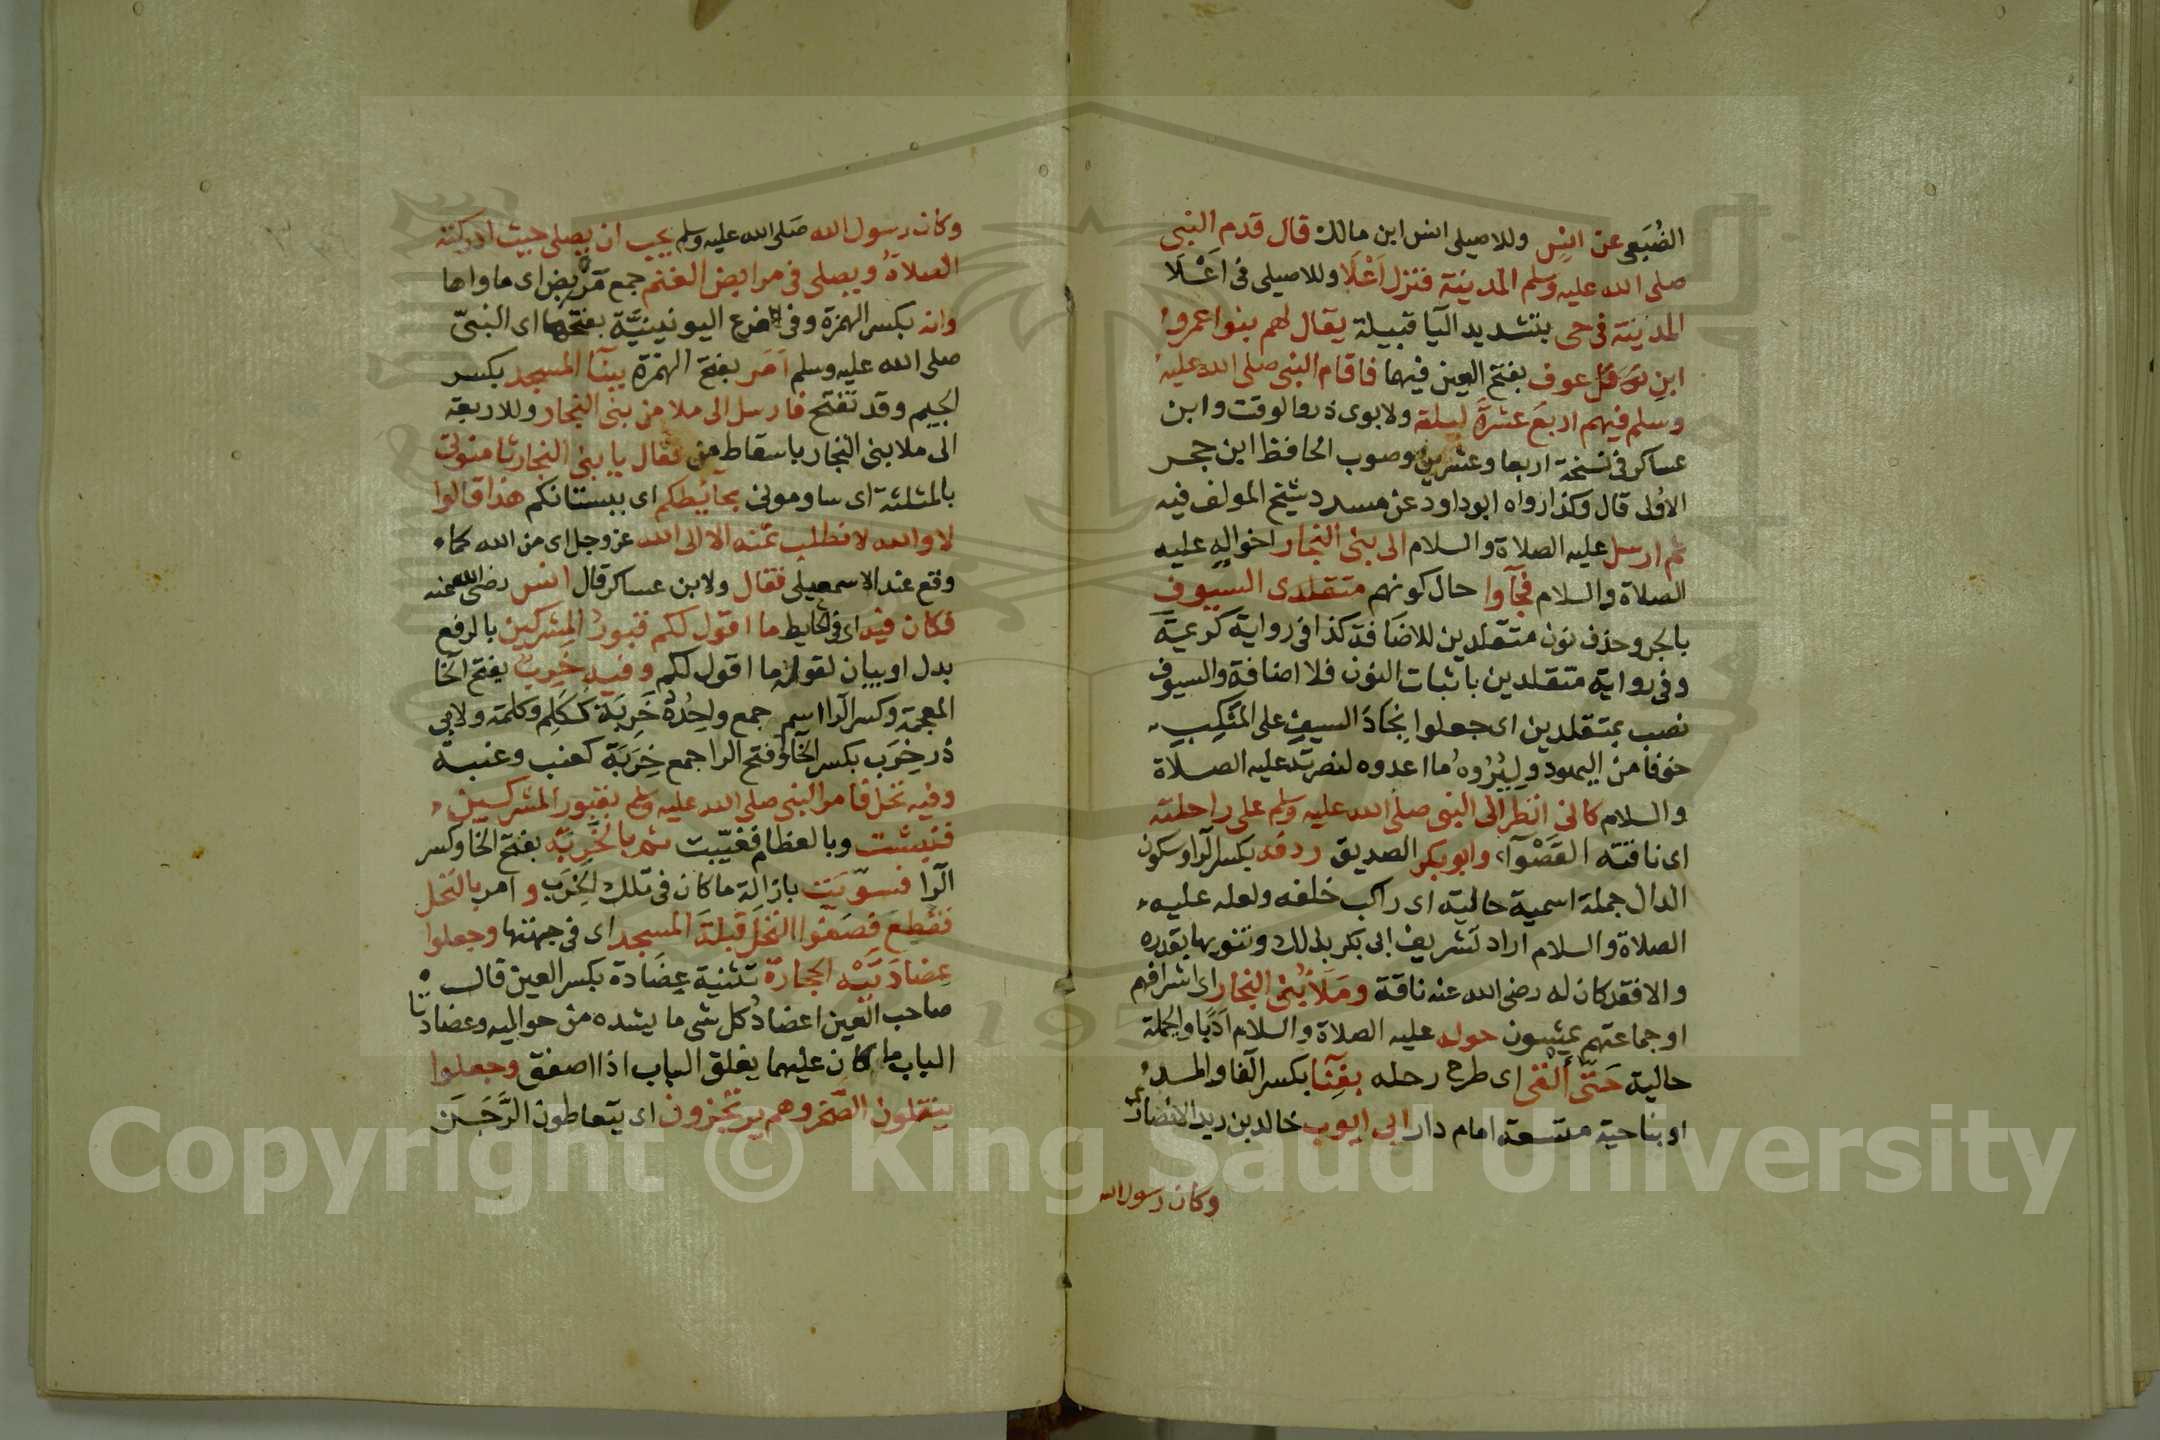 الضُبَعى عن انسٍ وللاصيلى انس ابن مالك قال قدم النبى
صلى الله عليه وسلم المدينة فنزل اَعْلَا وللاصيلى فى اَعْلَا
المدينة فى حى بتشديد اليا قبيلة يقال لهم بنوا عمرو
ابن عوف بفتح العين فيها فاقام النبى صلى الله عليه
وسلم فيهم اربعَ عشرةَ ليلة ولابوى ذر والوقت وابن
عساكر فى نسخة اربعا وعشرين وصوب الحافظ ابن حجر
الاولى قال وكذا رواه ابو داود عن مسدد شيخ المولف فيه
ثم ارسل عليه الصلاة والسلام الى بنى النجار اخواله عليه
الصلاة والسلام فجآوا حال كونهم متقلدى السيوف
بالجر وحذف نون متقلدين للاضافة كذا فى رواية كريمة
وفى رواية متقلدين باثبات النون فلا اضافة والسيوف
نصب بمتقلدين اى جعلوا نجادَ السيفِ على المَنكِبِ
خوفا من اليهود ولِيُرُوهُ ما اعدوه لنصرته عليه الصلاة
والسلام كانى انظر الى النبى صلى الله عليه وسلم على راحلته
اى ناقته القَصْوآء وابو بكر الصديق ردفه بكسر الرا وسكون
الدال جملة اسمية حالية اى راكب خلفه ولعله عليه
الصلاة والسلام اراد تشريف ابى بكر بذلك وتنويها بقدره
والا فقد كان له رضى الله عنه ناقة ومَلَأُ بنى النجار اى اشرافهم
او جماعتهم يمشون حوله عليه الصلاة والسلام ادبًا والجملة
حالية حَتّى أَلْقى اى طرح رحله بفِنَا بكسر الفا والمد
او بناحية متسعة امام دار ابى ايوب خالد بن زيد الانصارى
وكان رسول الله
وكان رسول الله صلى الله عليه وسلم يحب ان يصلى حيث ادركته
الصلاةُ ويصلى فى مرابض الغنم جمع مَرْبض اى ماواها
وانه بكسر الهمزة وفى فرع اليونينيَّة بفتحها اى النبىّ
صلى الله عليه وسلم اَمَر بفتح الهمزة ببنآ المسجد بكسر
الجيم وقد تفتح فارسل الى ملا من بنى النجار وللاربعة
الى ملا بنى النجار باسقاط من فقال يا بنى النجار ثامنونى
بالمثلثة اى ساومونى بحائطكم اى ببستانكم هذا قالوا
لا والله لا نطلب ثمنه الا الى الله عز وجل اى من الله كما
وقع عند الاسمعيلى فقال ولابن عساكر قال انس رضى الله عنه
فكان فيه اى فى الحايط ما اقول لكم قبورُ المشركين بالرفع
بدل او بيان لقوله ما اقول لكم وفيه خَرِبٌ بفتح الخا
المعجمة وكسر الرا اسم جمع واحدُهُ خَرِبَة ككَلِم وكلمة ولابى
ذر خِرَب بكسر الخا وفتح الرا جمع خِرَبَة كعنب وعنبة
وفيه نخل فامر النبى صلى الله عليه وسلم بقبور المشركين
فنبشت وبالعظام فغيّبت ثم بالخَرِبة بفتح الخا وكسر
الرا فسوّيَت بازالة ما كان فى تلك الخِرَب و امر بالنخل
فقُطِعَ فصَفوا النخلَ قبلةَ المسجد اى فى جهتها وجعلوا
عِضادَتَيْه الحجارةَ تثنية عِضَادة بكسر العين قال
صاحب العين اعضادُ كل شى ما يشده من حواليه وعضادتا
الباب ما كان عليهما يغلق الباب اذا اصفق وجعلوا
ينقلون الصَخر وهم يرتجزون اى يتعاطون الرَّجَز
Copyright © King Saud University